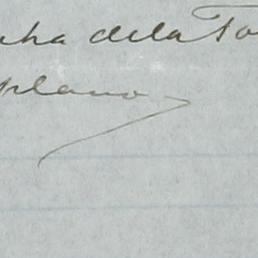 cha dela To
plano